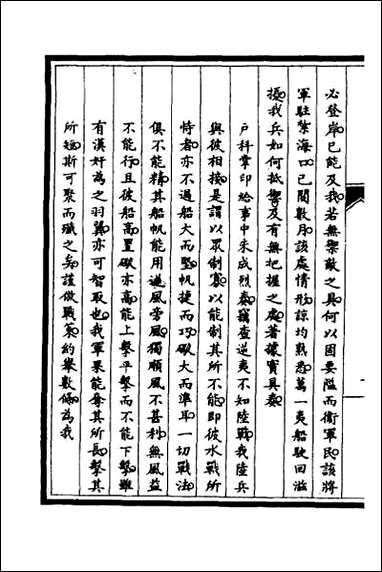 必登岸已能及我若無禦敵之具何以固要隘而衛軍民該將
軍駐紮海口已閱數月該處情形諒均熟悉萬一夷船駛回滋
擾我兵如何抵禦及有無把握之處著據實具奏
戶科掌印給事中朱成烈奏竊查逆夷不知陸戰我陸兵
與彼相接是謂以眾制寡以能制其所不能即彼水戰所
恃者亦不過船大而堅帆捷而巧礮大而準耳一切戰法
俱不能精其船帆能用逆風旁風獨順風不甚利無風益
不能行且彼船高置礮亦高能上擊平擊而不能下擊雖
有漢奸為之羽翼亦可智取也我軍果能奪其所長擊其
所短斯可聚而殲之矣謹做戰策約舉數條為我